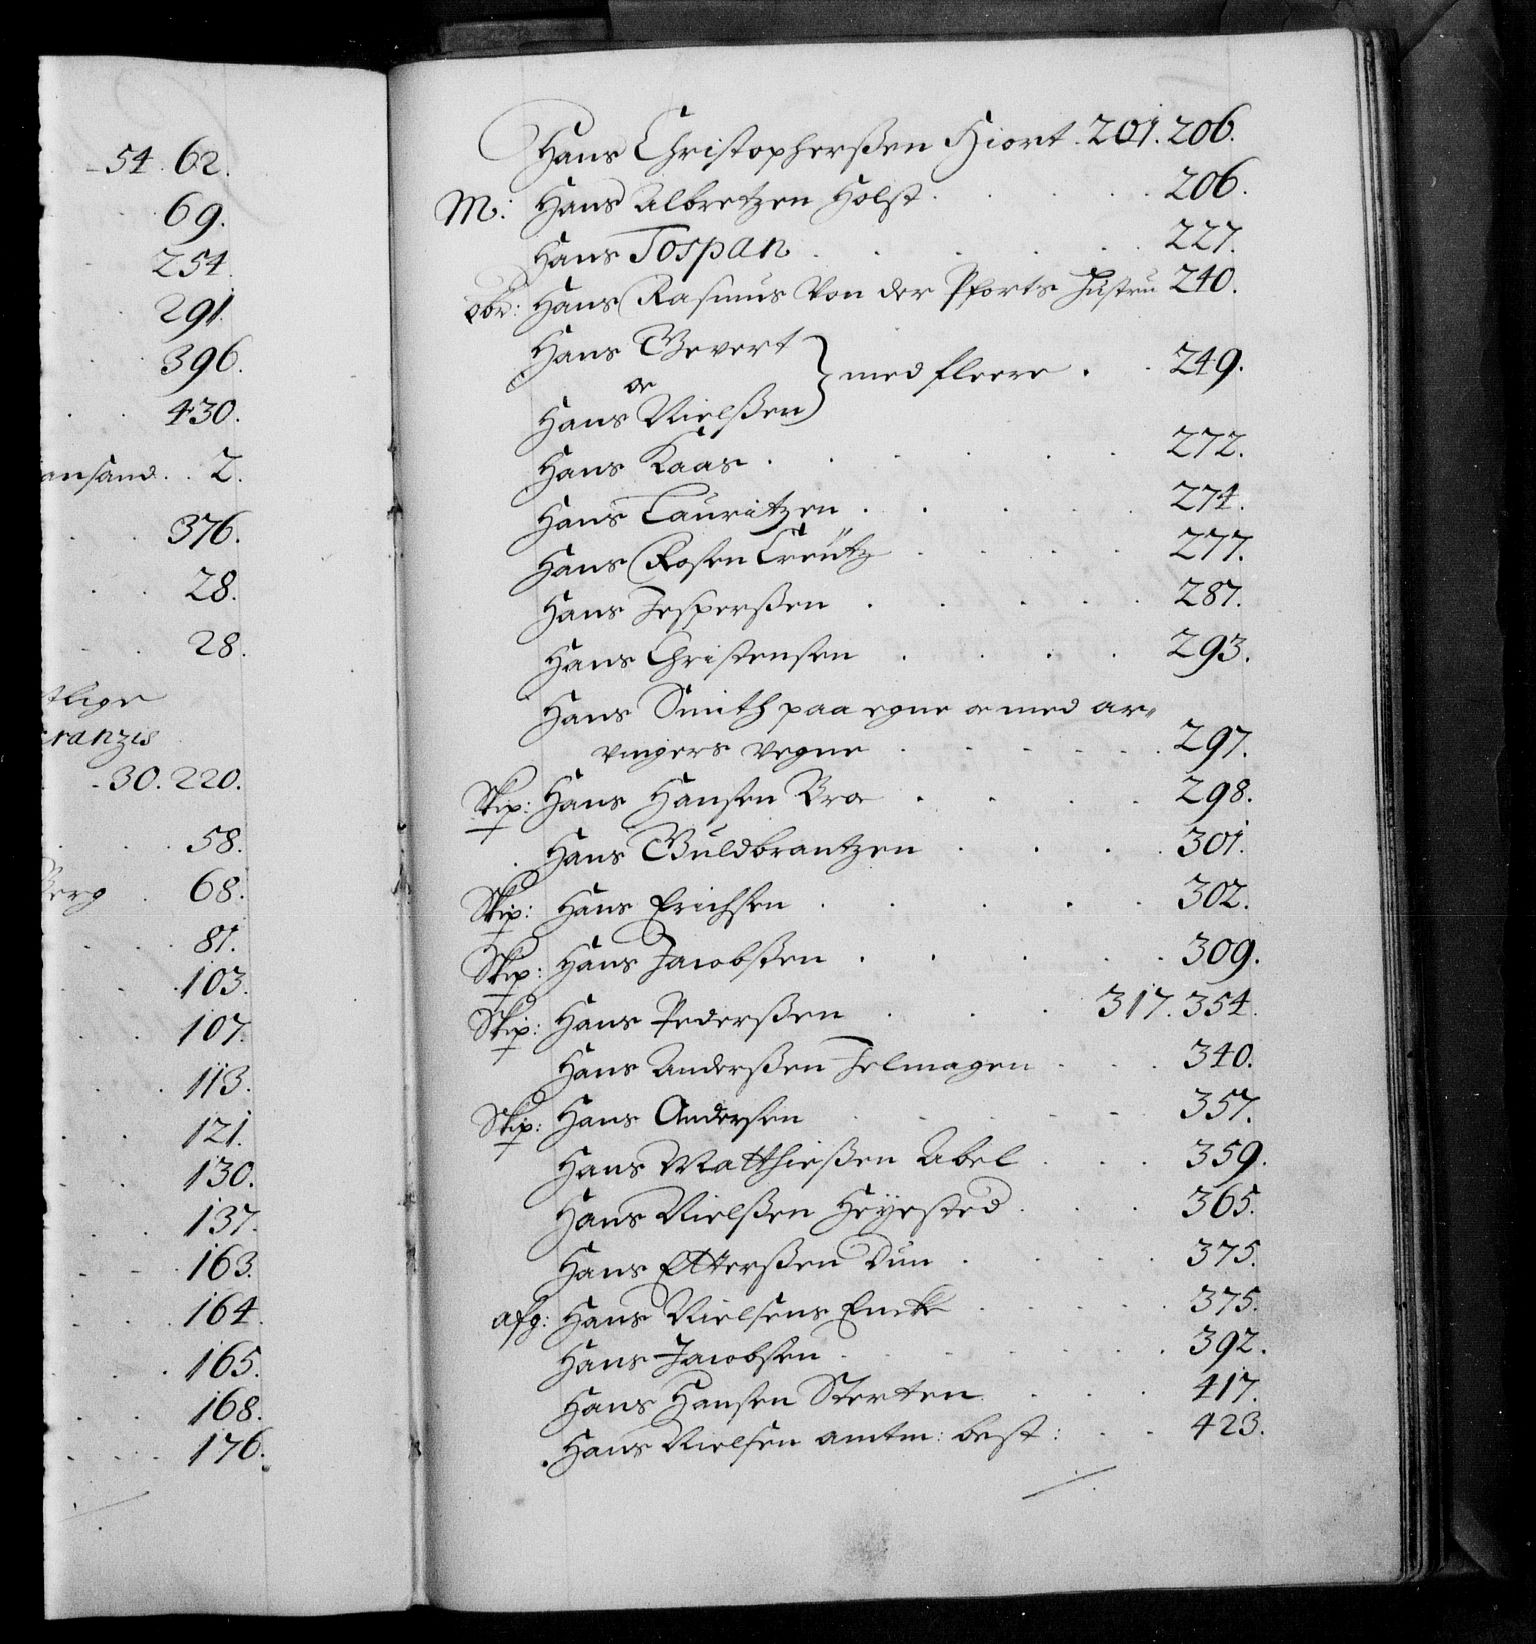 - 54. 62.
69.
254.
291.
396.
430.
ansand. . 2.
376.
28.
28.
tlige
ranzis
- 30. 220.
58.
Berg . 68.
81.
103.
107.
113.
121.
130.
137.
163.
164.
165.
168.
176.
Hans Christopherßen Hiort . 201. 206.
M: Hans Albretzen Holst . 206.
Hans Jospan . 227.
Obr: Hans Rasmus Von der Pforts Hustru 240.
Hans Gevert
oc
Hans Nielßen } med fleere . 249.
Hans Kaas . 272.
Hans Lauritzen . 274.
Hans RosenCreütz 277.
Hans Jesperßen . 287.
Hans Christensen . 293.
Hans Smith paa egne oc med ar„
vingers vegne . 297.
Skip: Hans Hansen Bra . 298.
Hans Guldbrantzen . 301.
Skip: Hans Erichsen . 302.
Skip: Hans Jacobsen . 309.
Skip: Hans Pederßen . 317. 354.
Hans Anderßen Jelmagen . 340.
Skip: Hans Andersen 357.
Hans Matthießen Abel . 359.
Hans Nielßen Heyested . 365.
Hans Etterßen Dun . 375.
afg: Hans Nielsens Encke . 375.
Hans Jacobsen . 392.
Hans Hansen Sterten . 417.
Hans Nielsen amtm: best: . 423.